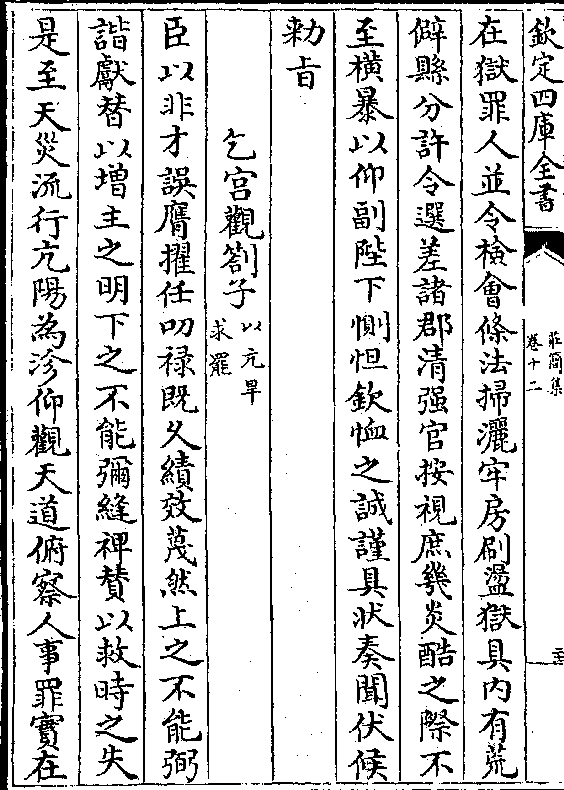 欽定四庫全書
莊簡集
卷十二
在獄罪人並令檢會條法掃灑牢房刷盪獄具内有荒
僻縣分許令選差諸郡清强官按視庶幾炎酷之際不
至横暴以仰副陛下惻怛欽恤之誠謹具狀奏聞伏候
勅旨
乞宫觀劄子以亢旱求罷
臣以非才誤膺擢任叨禄既久績效蔑然上之不能弼
諧獻替以增主之明下之不能彌縫裨賛以救時之失
是至天災流行亢陽為沴仰觀天道俯察人事罪實在